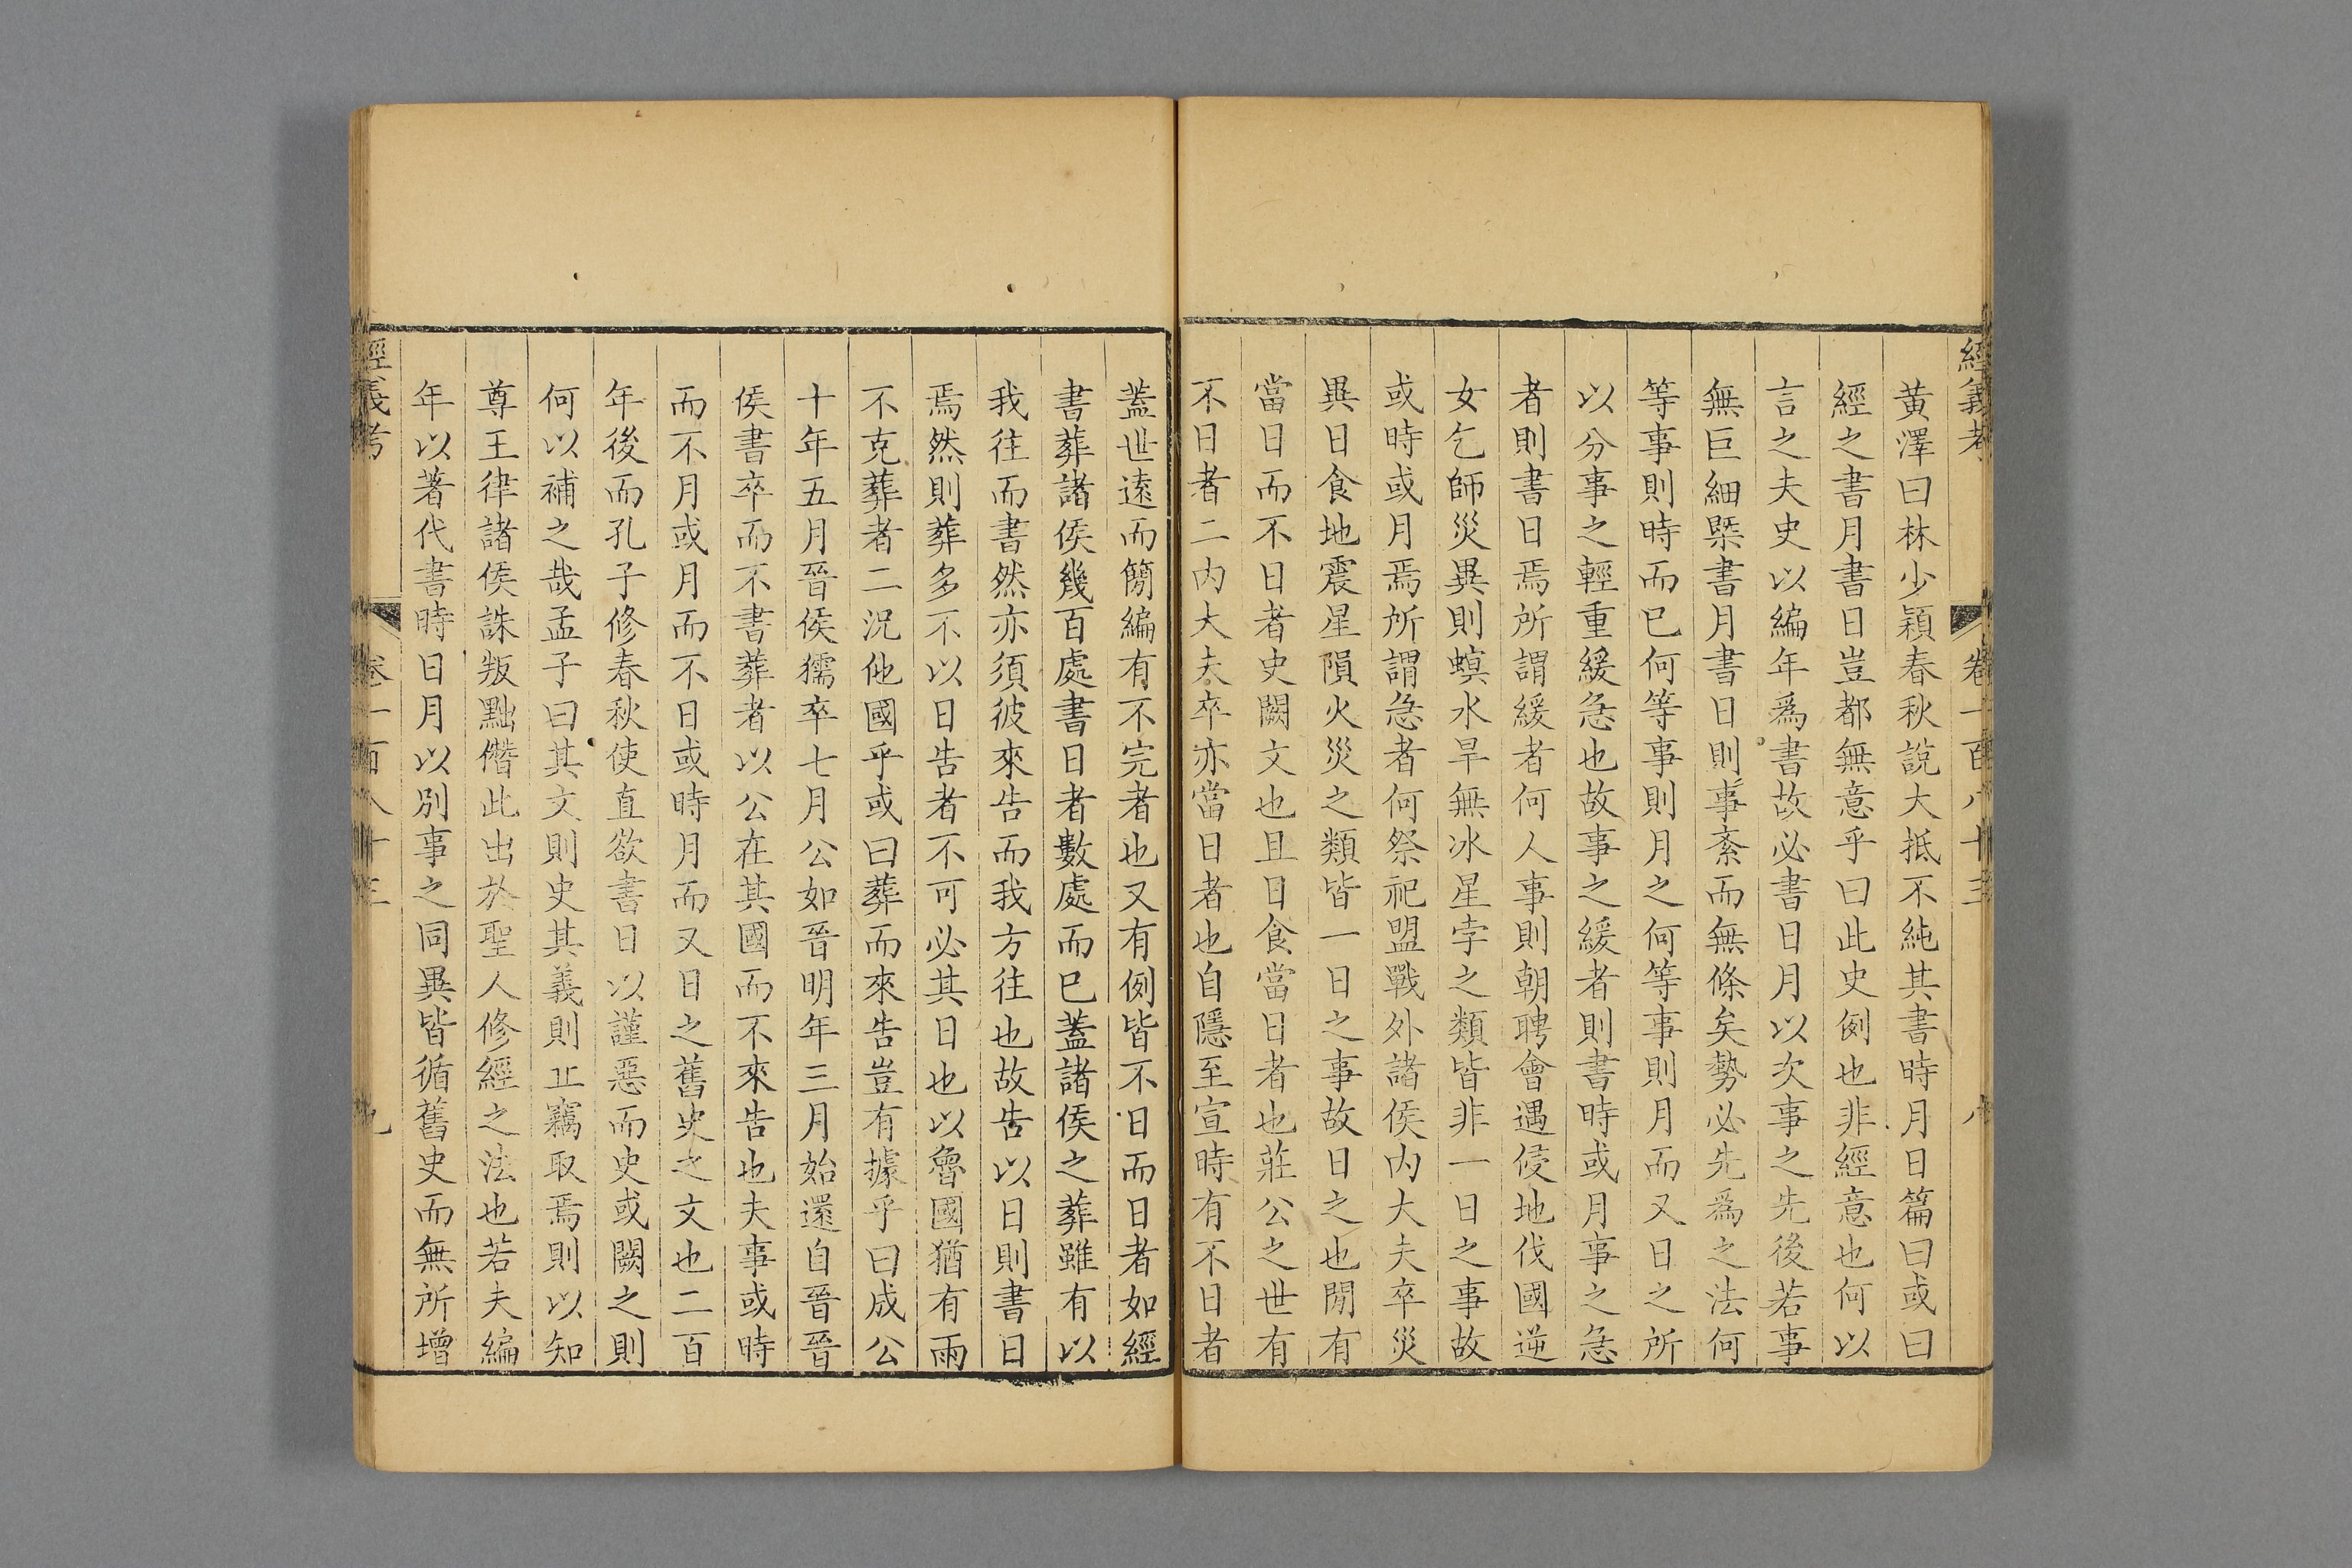 經義考 卷一百八十三 八
黃澤曰林少穎春秋說大抵不純其書時月日篇曰或曰
經之書月書日豈都無意乎曰此史例也非經意也何以
言之夫史以編年爲書故必書日月以次事之先後若事
無巨細槩書月書日則事紊而無條矣勢必先爲之法何
等事則時而已何等事則月之何等事則月而又日之所
以分事之輕重緩急也故事之緩者則書時或月事之急
者則書日焉所謂緩者何人事則朝聘會遇侵地伐國逆
女乞師災異則螟水旱無冰星孛之類皆非一日之事故
或時或月焉所謂急者何祭祀盟戰外諸侯内大夫卒災
異日食地震星隕火災之類皆一日之事故日之也閒有
當日而不日者史闕文也且日食當日者也莊公之世有
不日者二内大夫卒亦當日者也自隱至宣時有不日者
蓋世遠而簡編有不完者也又有例皆不日而日者如經
書葬諸侯幾百處書日者數處而已蓋諸侯之葬雖有以
我往而書然亦須彼來告而我方往也故告以日則書日
焉然則葬多不以日告者不可必其日也以魯國猶有雨
不克葬者二況他國乎或曰葬而來告豈有據乎曰成公
十年五月晉侯獳卒七月公如晉明年三月始還自晉晉
侯書卒而不書葬者以公在其國而不來告也夫事或時
而不月或月而不日或時月而又日之舊史之文也二百
年後而孔子修春秋使直欲書日以謹惡而史或闕之則
何以補之哉孟子曰其文則史其義則丘竊取焉則以知
尊王律諸侯誅叛黜僭此出於聖人修經之法也若夫編
年以著代書時日月以別事之同異皆循舊史而無所增
經義考 卷一百八十三 九